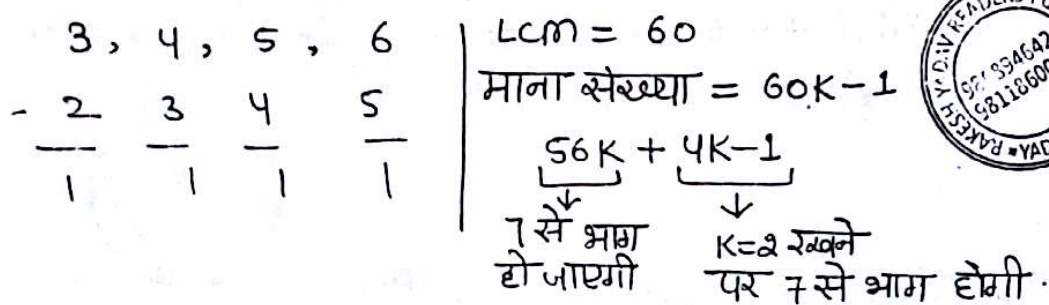 3, 4, 5, 6
- 2 3 4 5
1 1 1 1
LCM = 60
माना संख्या = 60K-1
56K + 4K-1
7 से भाग हो जाएगी
K=2 रखने पर 7 से भाग होगी.
RAKESH YADAV READERS